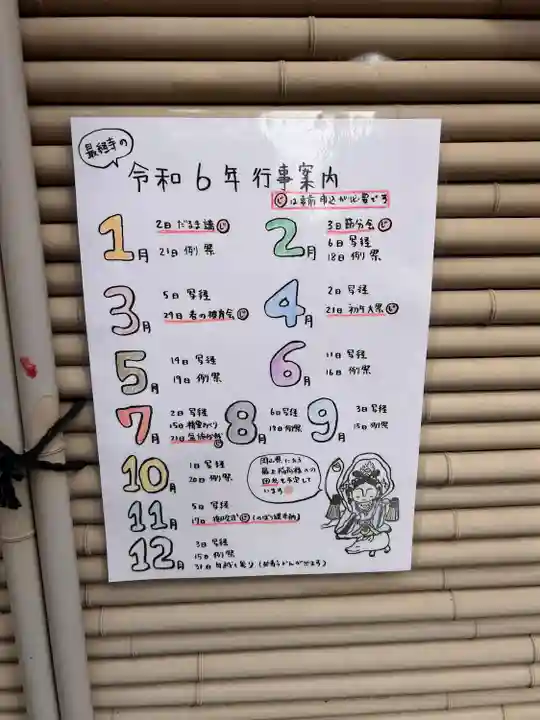 最経寺の
令和6年行事案内
じは事前申込が必要です
1月
2日 だるま講 じ
21日 例祭
2月
3日 節分会 じ
6日 写経
18日 例祭
3月
5日 写経
4月
2日 写経
21日 初午大祭 じ
5月
14日 写経
19日 例祭
6月
11日 写経
16日 例祭
7月
2日 写経
21日
8月
6日 写経
18日 例祭
9月
3日 写経
15日 例祭
10月
1日 写経
20日 例祭
11月
5日 写経
17日
12月
3日 写経
15日 例祭
31日
岡山県にある
最上稲荷様への
団参も予定して
います